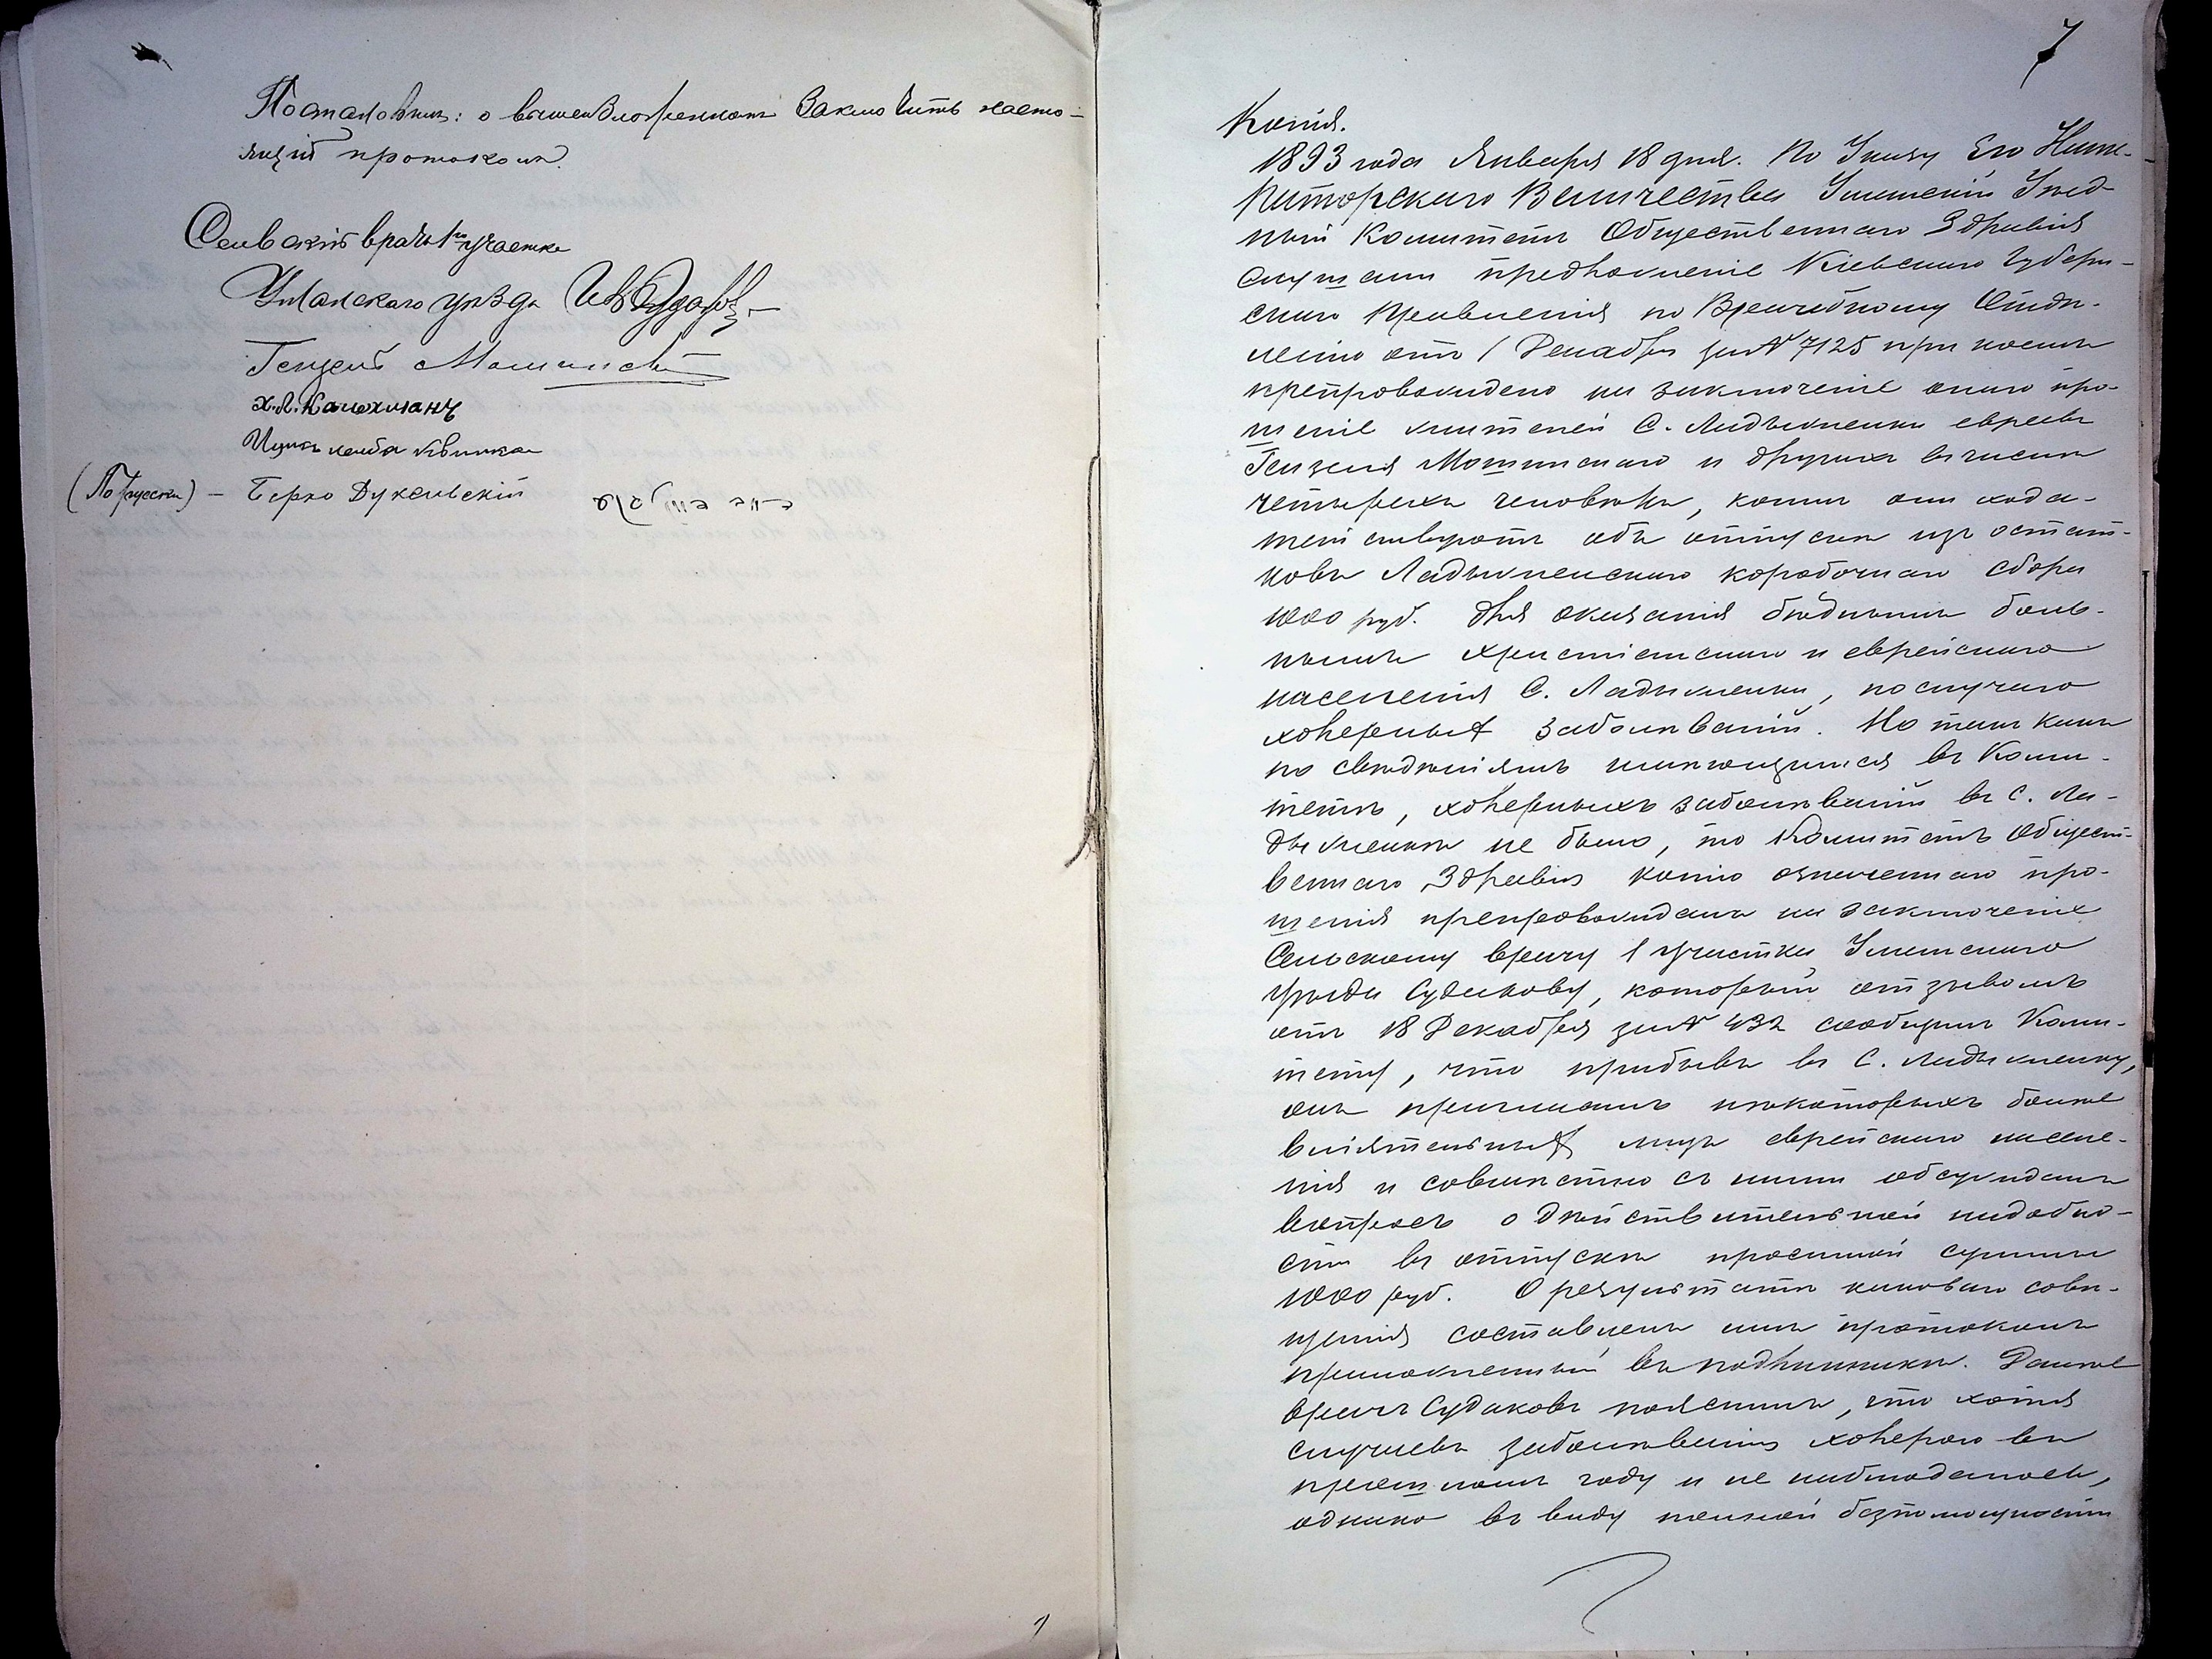 Постановилъ: о вышеизложенномъ заключить насто-
ящій протоколъ.
Сельскій врачъ 1го участка
Уманскаго уѣзда
Гензель Мошинскій
Х. Л. Калохманъ
Ицко лейба Квитка
(По русски) – Берко Дукельскій
7
Копія.
1893 года Января 18 дня. По Указу Его Импе-
раторскаго Величества Уманскій Уѣзд-
ный Комитетъ Общественнаго Здравія
слушали предложеніе Кіевскаго Губерн-
скаго Правленія по Врачебному Отдѣ-
ленію отъ 1 Декабря за № 7125 при коемъ
препровождено на заключеніе оного про-
шеніе жителей С. Ладыженки евреевъ
Гензеля Мошинскаго и другихъ въ числѣ
четырехъ человѣкъ, коимъ они хода-
тайствуютъ объ отпускѣ изъ остат-
ковъ Ладыженскаго коробочнаго сбора
1000 руб. для оказанія бѣднымъ боль-
нымъ христіанскаго и еврейскаго
населенія С. Ладыженки, по случаю
холерныхъ заболѣваній. Но такъ какъ
по свѣдѣніямъ имѣющимся въ Коми-
тетѣ, холерныхъ заболѣваній въ С. Ла-
дыженкѣ не было, то Комитетъ Общест-
веннаго Здравія копію означеннаго про-
шенія препровождалъ на заключеніе
Сельскому врачу 1 участка Уманскаго
уѣзда Судакову, который отзывомъ
отъ 18 Декабря за № 432 сообщилъ Коми-
тету, что прибывъ въ С. Ладыженку,
онъ пригласилъ нѣкоторыхъ болѣе
вліятельныхъ лицъ еврейскаго населе-
нія и совмѣстно съ ними обсуждалъ
вопросъ о дѣйствительной надобно-
сти въ отпускѣ просимой суммы
1000 руб. О результатѣ каковаго совѣ-
щанія составленъ имъ протоколъ
приложенный въ подлинникѣ. Далѣе
врачъ Судаковъ пояснилъ, что хотя
случаевъ заболѣванія холерою въ
прошломъ году и не наблюдалось,
однако въ виду полной безпомощности